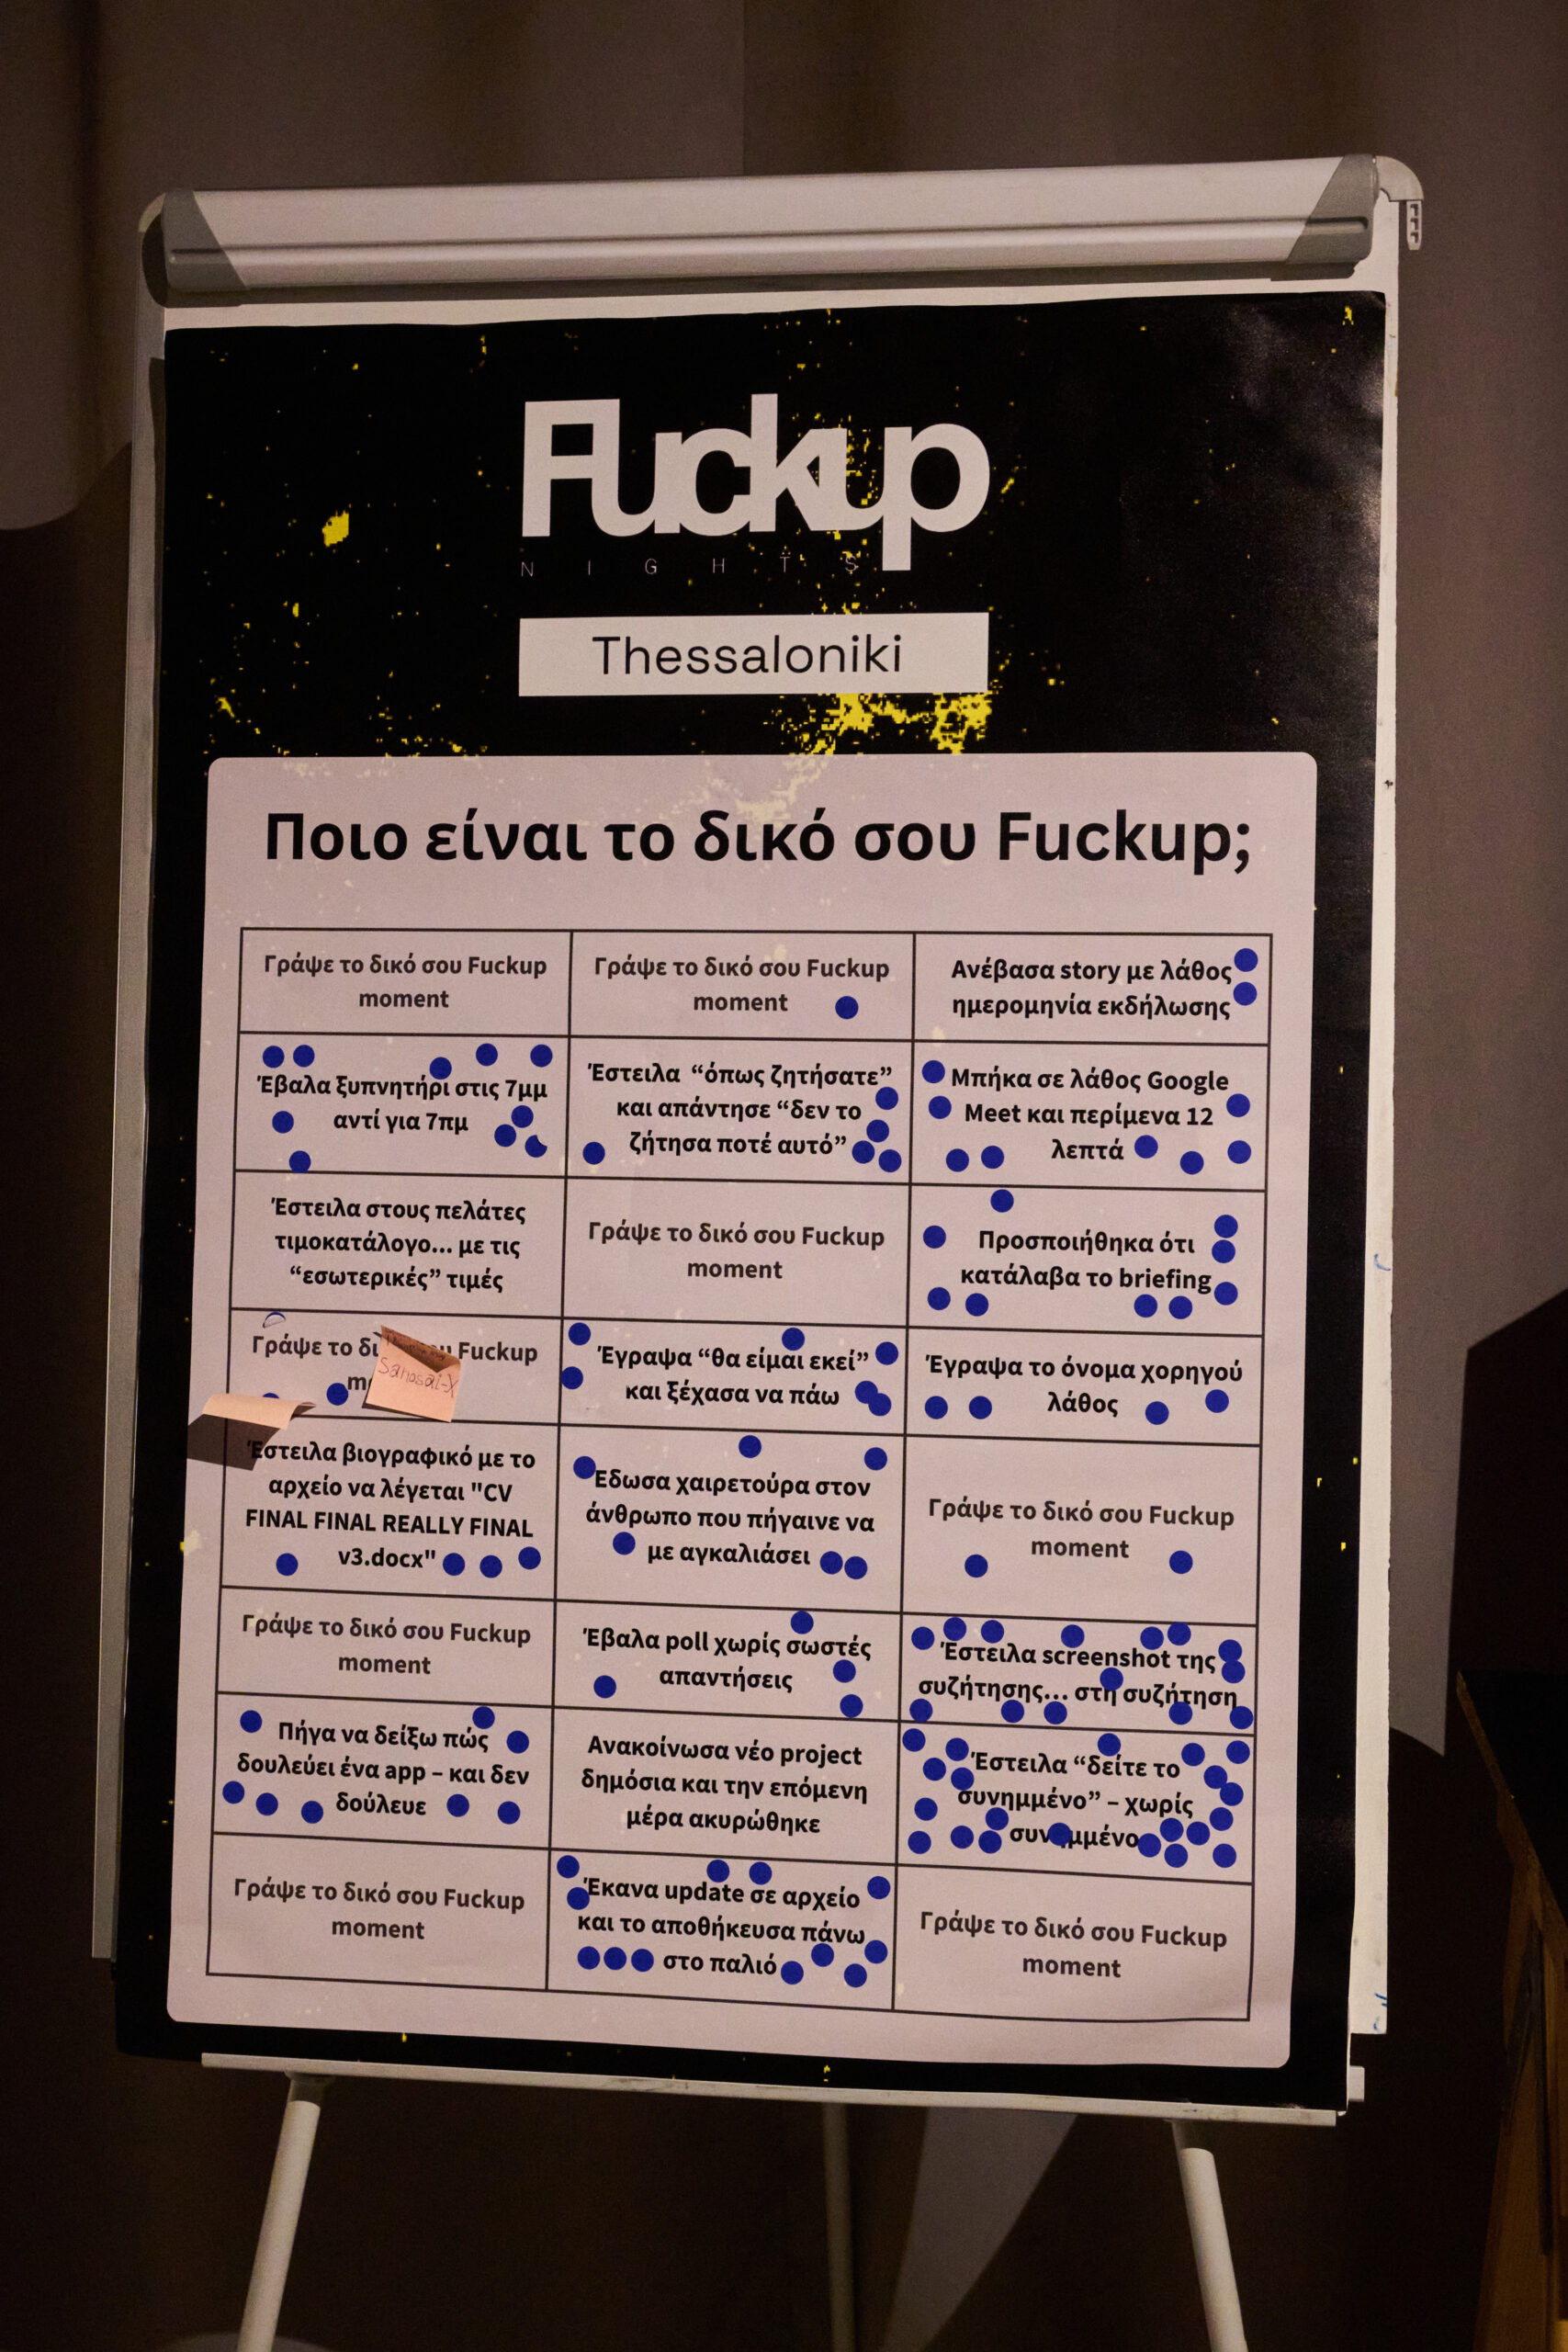 Fuckup
NIGHTS
Thessaloniki
Ποιο είναι το δικό σου Fuckup;
Γράψε το δικό σου Fuckup
moment
Γράψε το δικό σου Fuckup
moment
Ανέβασα story με λάθος
ημερομηνία εκδήλωσης
Έβαλα ξυπνητήρι στις 7μμ
αντί για 7πμ
Έστειλα “όπως ζητήσατε”
και απάντησε “δεν το
ζήτησα ποτέ αυτό”
Μπήκα σε λάθος Google
Meet και περίμενα 12
λεπτά
Έστειλα στους πελάτες
τιμοκατάλογο... με τις
“εσωτερικές” τιμές
Γράψε το δικό σου Fuckup
moment
Προσποιήθηκα ότι
κατάλαβα το briefing
Γράψε το Fuckup
Έγραψα “θα είμαι εκεί”
και ξέχασα να πάω
Έγραψα το όνομα χορηγού
λάθος
Έστειλα βιογραφικό με το
αρχείο να λέγεται "CV
FINAL FINAL REALLY FINAL
v3.docx"
Έδωσα χαιρετούρα στον
άνθρωπο που πήγαινε να
με αγκαλιάσει
Γράψε το δικό σου Fuckup
moment
Γράψε το δικό σου Fuckup
moment
Έβαλα poll χωρίς σωστές
απαντήσεις
Έστειλα screenshot της
συζήτησης... στη συζήτηση
Πήγα να δείξω πώς
δουλεύει ένα app – και δεν
δούλευε
Ανακοίνωσα νέο project
δημόσια και την επόμενη
μέρα ακυρώθηκε
Έστειλα “δείτε το
συνημμένο” – χωρίς
συνημμένο
Γράψε το δικό σου Fuckup
moment
Έκανα update σε αρχείο
και το αποθήκευσα πάνω
στο παλιό
Γράψε το δικό σου Fuckup
moment